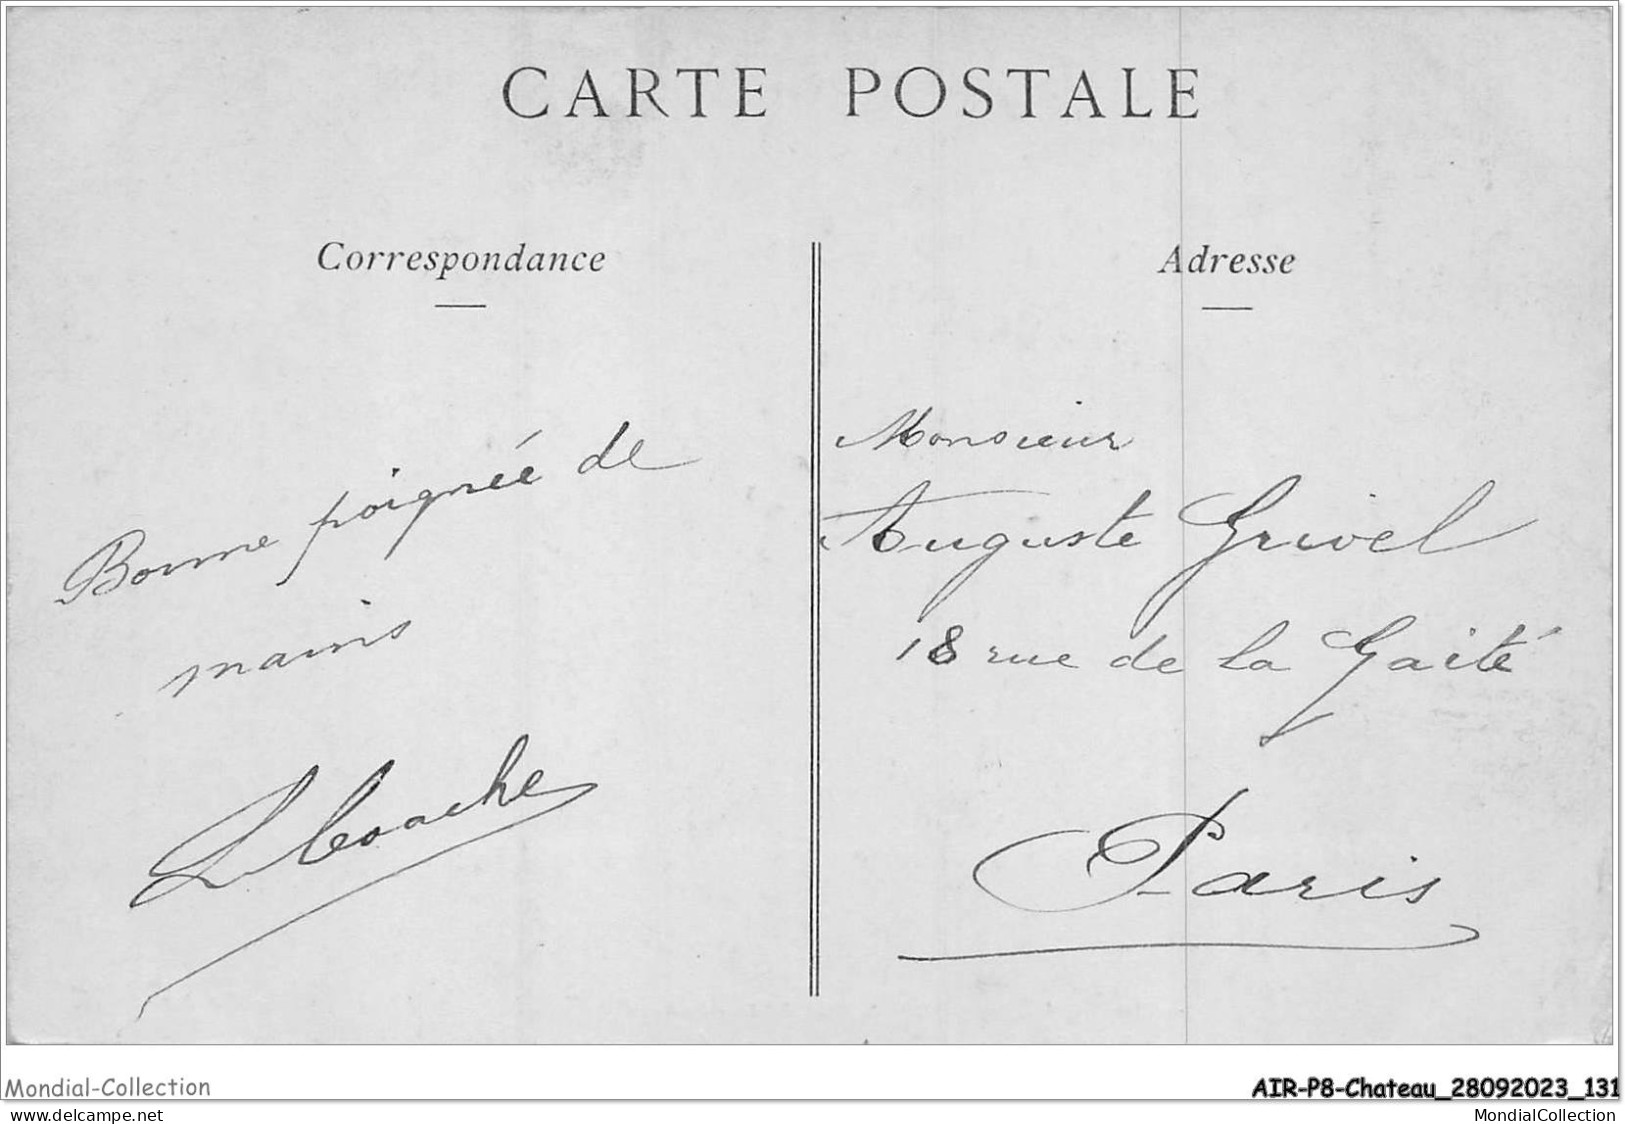 CARTE POSTALE
Correspondance
Bonne poignée de
mains
Adresse
Monsieur
Auguste Grivel
18 rue de la Gaité
Paris
Mondial-Collection
AIR-P8-Chateau_28092023_131
www.delcampe.net
MondialCollection